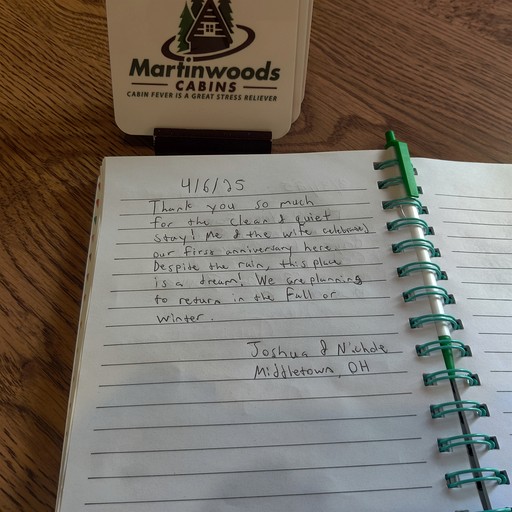 Martinwoods
CABINS
CABIN FEVER IS A GREAT STRESS RELIEVER
4/6/25
Thank you so much
for the clean & quiet
stay! Me & the wife celebrated
our first anniversary here.
Despite the rain, this place
is a dream! We are planning
to return in the Fall or
winter.
Joshua & Nichole
Middletown, OH